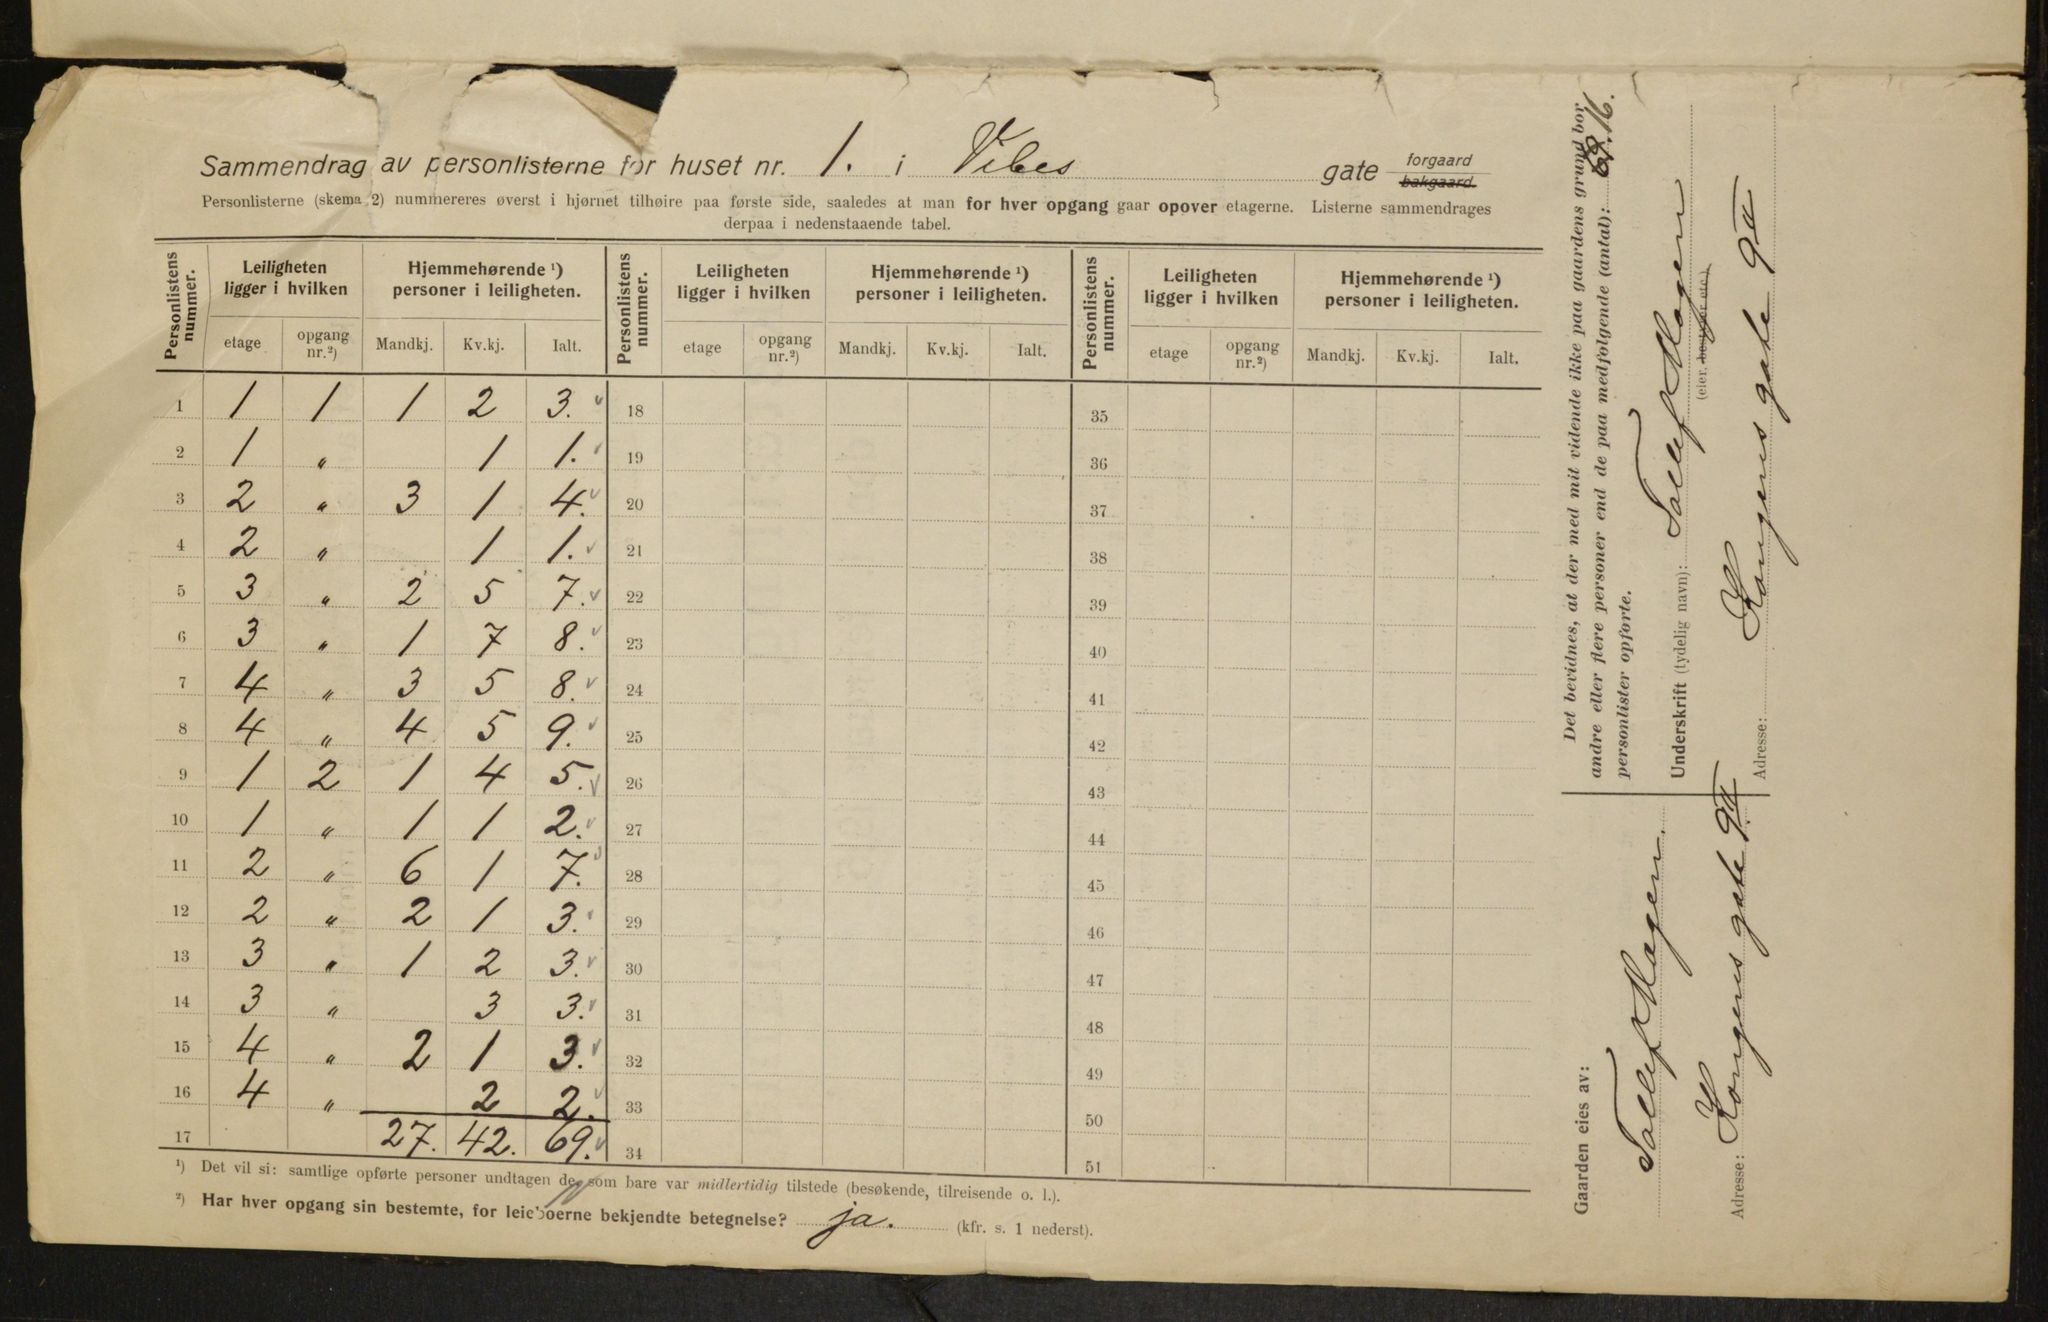 Sammendrag av personlisterne for huset nr. 1. i Vibes gate forgaard ~~bakgaard.~~
Personlisterne (skema 2) nummereres øverst i hjørnet tilhøire paa første side, saaledes at man for hver opgang gaar opover etagerne. Listerne sammendrages
derpaa i nedenstaaende tabel.
Personlistens nummer. | Leiligheten ligger i hvilken | Hjemmehørende ¹) personer i leiligheten. | Personlistens nummer. | Leiligheten ligger i hvilken | Hjemmehørende ¹) personer i leiligheten. | Personlistens nummer. | Leiligheten ligger i hvilken | Hjemmehørende ¹) personer i leiligheten.
etage | opgang nr.²) | Mandkj. | Kv.kj. | Ialt. | etage | opgang nr.²) | Mandkj. | Kv.kj. | Ialt. | etage | opgang nr.²) | Mandkj. | Kv.kj. | Ialt.
1 | 1 | 1 | 1 | 2 | 3. | 18 | 35
2 | 1 | " | | 1 | 1. | 19 | 36
3 | 2 | " | 3 | 1 | 4. | 20 | 37
4 | 2 | " | | 1 | 1. | 21 | 38
5 | 3 | " | 2 | 5 | 7. | 22 | 39
6 | 3 | " | 1 | 7 | 8. | 23 | 40
7 | 4 | " | 3 | 5 | 8. | 24 | 41
8 | 4 | " | 4 | 5 | 9. | 25 | 42
9 | 1 | 2 | 1 | 4 | 5. | 26 | 43
10 | 1 | " | 1 | 1 | 2. | 27 | 44
11 | 2 | " | 6 | 1 | 7. | 28 | 45
12 | 2 | " | 2 | 1 | 3. | 29 | 46
13 | 3 | " | 1 | 2 | 3. | 30 | 47
14 | 3 | " | | 3 | 3. | 31 | 48
15 | 4 | " | 2 | 1 | 3. | 32 | 49
16 | 4 | " | | 2 | 2. | 33 | 50
17 | | | 27. | 42. | 69. | 34 | 51
¹) Det vil si: samtlige opførte personer undtagen de, som bare var midlertidig tilstede (besøkende, tilreisende o. l.).
²) Har hver opgang sin bestemte, for leieboerne bekjendte betegnelse? ja. (kfr. s. 1 nederst).
Gaarden eies av:
Tollef Mogen
Adresse: Kongens gate 9 II
Det bevidnes, at der med mit vidende ikke paa gaardens grund bor
andre eller flere personer end de paa medfølgende (antal): 16.
personlister opførte.
Underskrift (tydelig navn): Tollef Mogen
(eier, ~~bestyrer etc.~~)
Adresse: Kongens gate 9 II